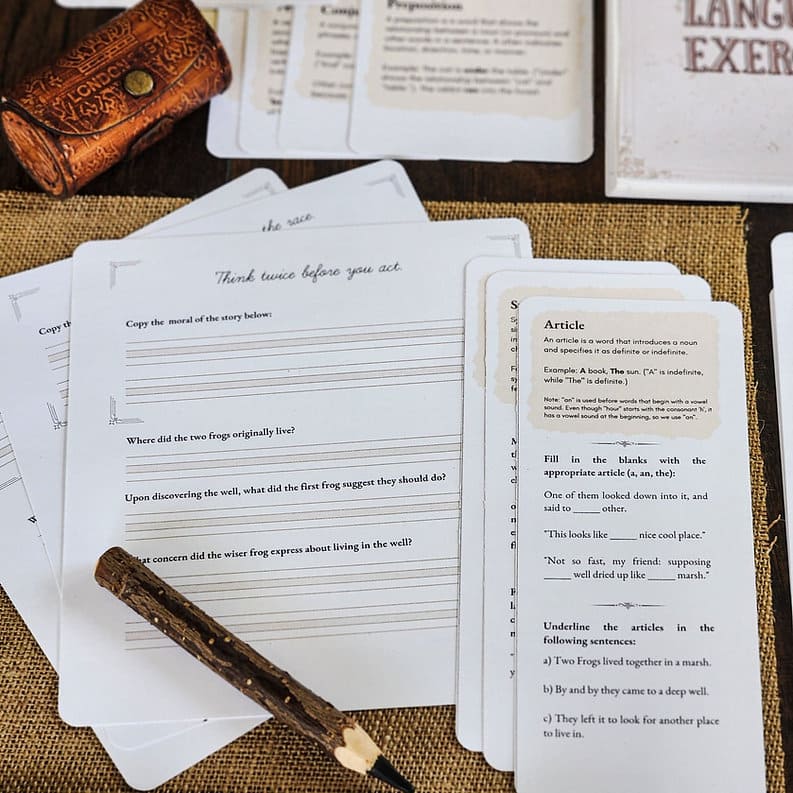 LONDON
Preposition
A preposition is a word that shows the
relationship between a noun (or pronoun) and
other words in a sentence. It often indicates
location, direction, time, or
Example: The cat is under the table. ("Under"
shows the relationship between "cat" and
"table"). The rabbit ran into the forest.
EXER
the race.
Think twice before you act.
Copy the moral of the story below:
Where did the two frogs originally live?
Upon discovering the well, what did the first frog suggest they should do?
concern did the wiser frog express about living in the well?
Copy th
Article
An article is a word that introduces a noun
and specifies it as definite or indefinite.
Example: A book, The sun. ("A" is indefinite,
while "The" is definite.)
Note: "an" is used before words that begin with a vowel
sound. Even though "hour" starts with the consonant 'h', it
has a vowel sound at the beginning, so we use "an".
Fill in the blanks with the
appropriate article (a, an, the):
One of them looked down into it, and
said to _____ other.
"This looks like _____ nice cool place."
"Not so fast, my friend: supposing
_____ well dried up like _____ marsh."
Underline the articles in the
following sentences:
a) Two Frogs lived together in a marsh.
b) By and by they came to a deep well.
c) They left it to look for another place
to live in.